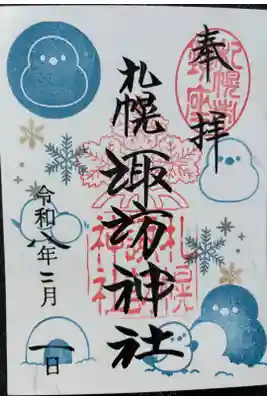 奉拝
札幌
諏訪神社
令和八年二月一日